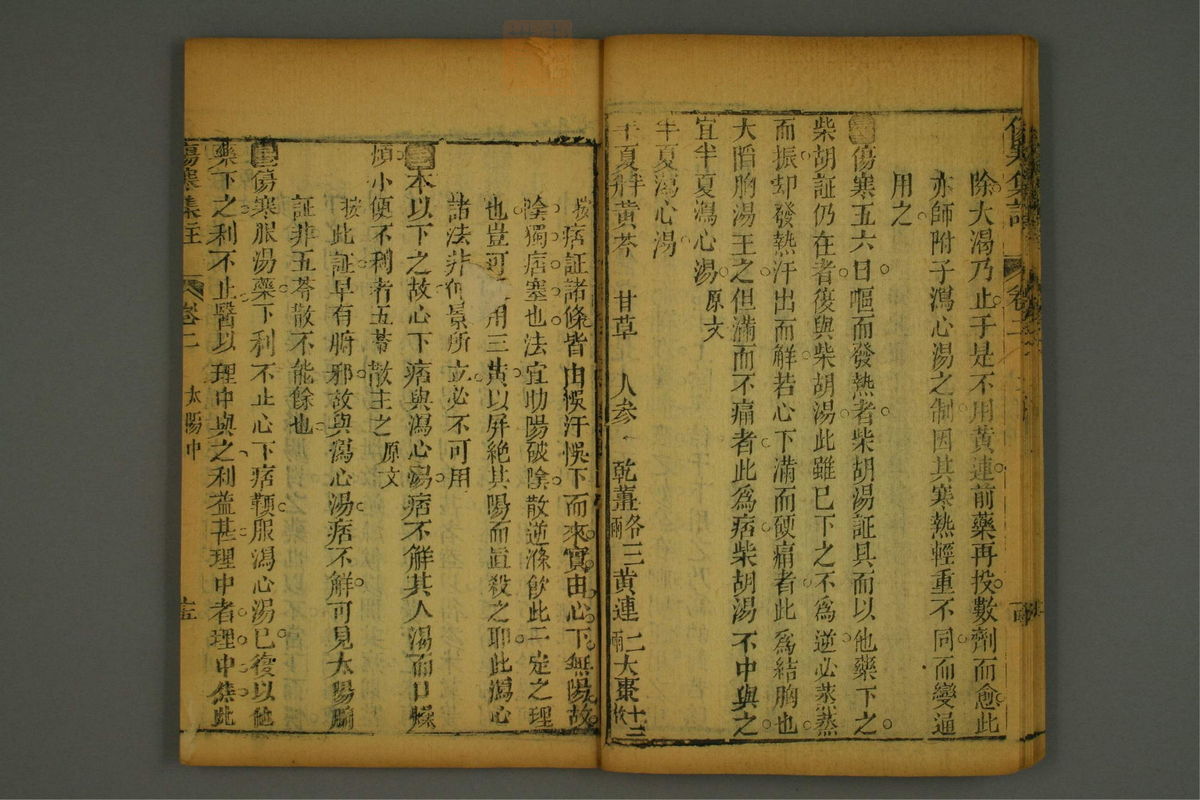 傷寒集註 卷二
除大渴乃止于是不用黃連前藥再投數劑而愈此
亦師附子瀉心湯之制因其寒熱輕重不同而變通
用之
傷寒五六日嘔而發熱者柴胡湯証具而以他藥下之
柴胡証仍在者復與柴胡湯此雖已下之不爲逆必蒸蒸
而振却發熱汗出而解若心下滿而硬痛者此爲結胸也
大陷胸湯主之但滿而不痛者此爲痞柴胡湯不中與之
宜半夏瀉心湯 原文
半夏瀉心湯
半夏半升 黃芩 甘草 人參 乾薑各三兩 黃連一兩 大棗十二枚
按痞証諸條皆由悞汗悞下而來實由心下無陽故
陰獨痞塞也法宜助陽破陰散逆滌飲此一定之理
也豈可用三黃以屏絕其陽而直殺之耶此瀉心
諸法非仲景所立必不可用
本以下之故心下痞與瀉心湯痞不解其人渴而口燥
煩小便不利者五苓散主之 原文
按此証早有腑邪故與瀉心湯痞不解可見太陽腑
証非五苓散不能除也
傷寒服湯藥下利不止心下痞鞕服瀉心湯已復以他
藥下之利不止醫以理中與之利益甚理中者理中焦此
傷寒集註 卷二 太陽中